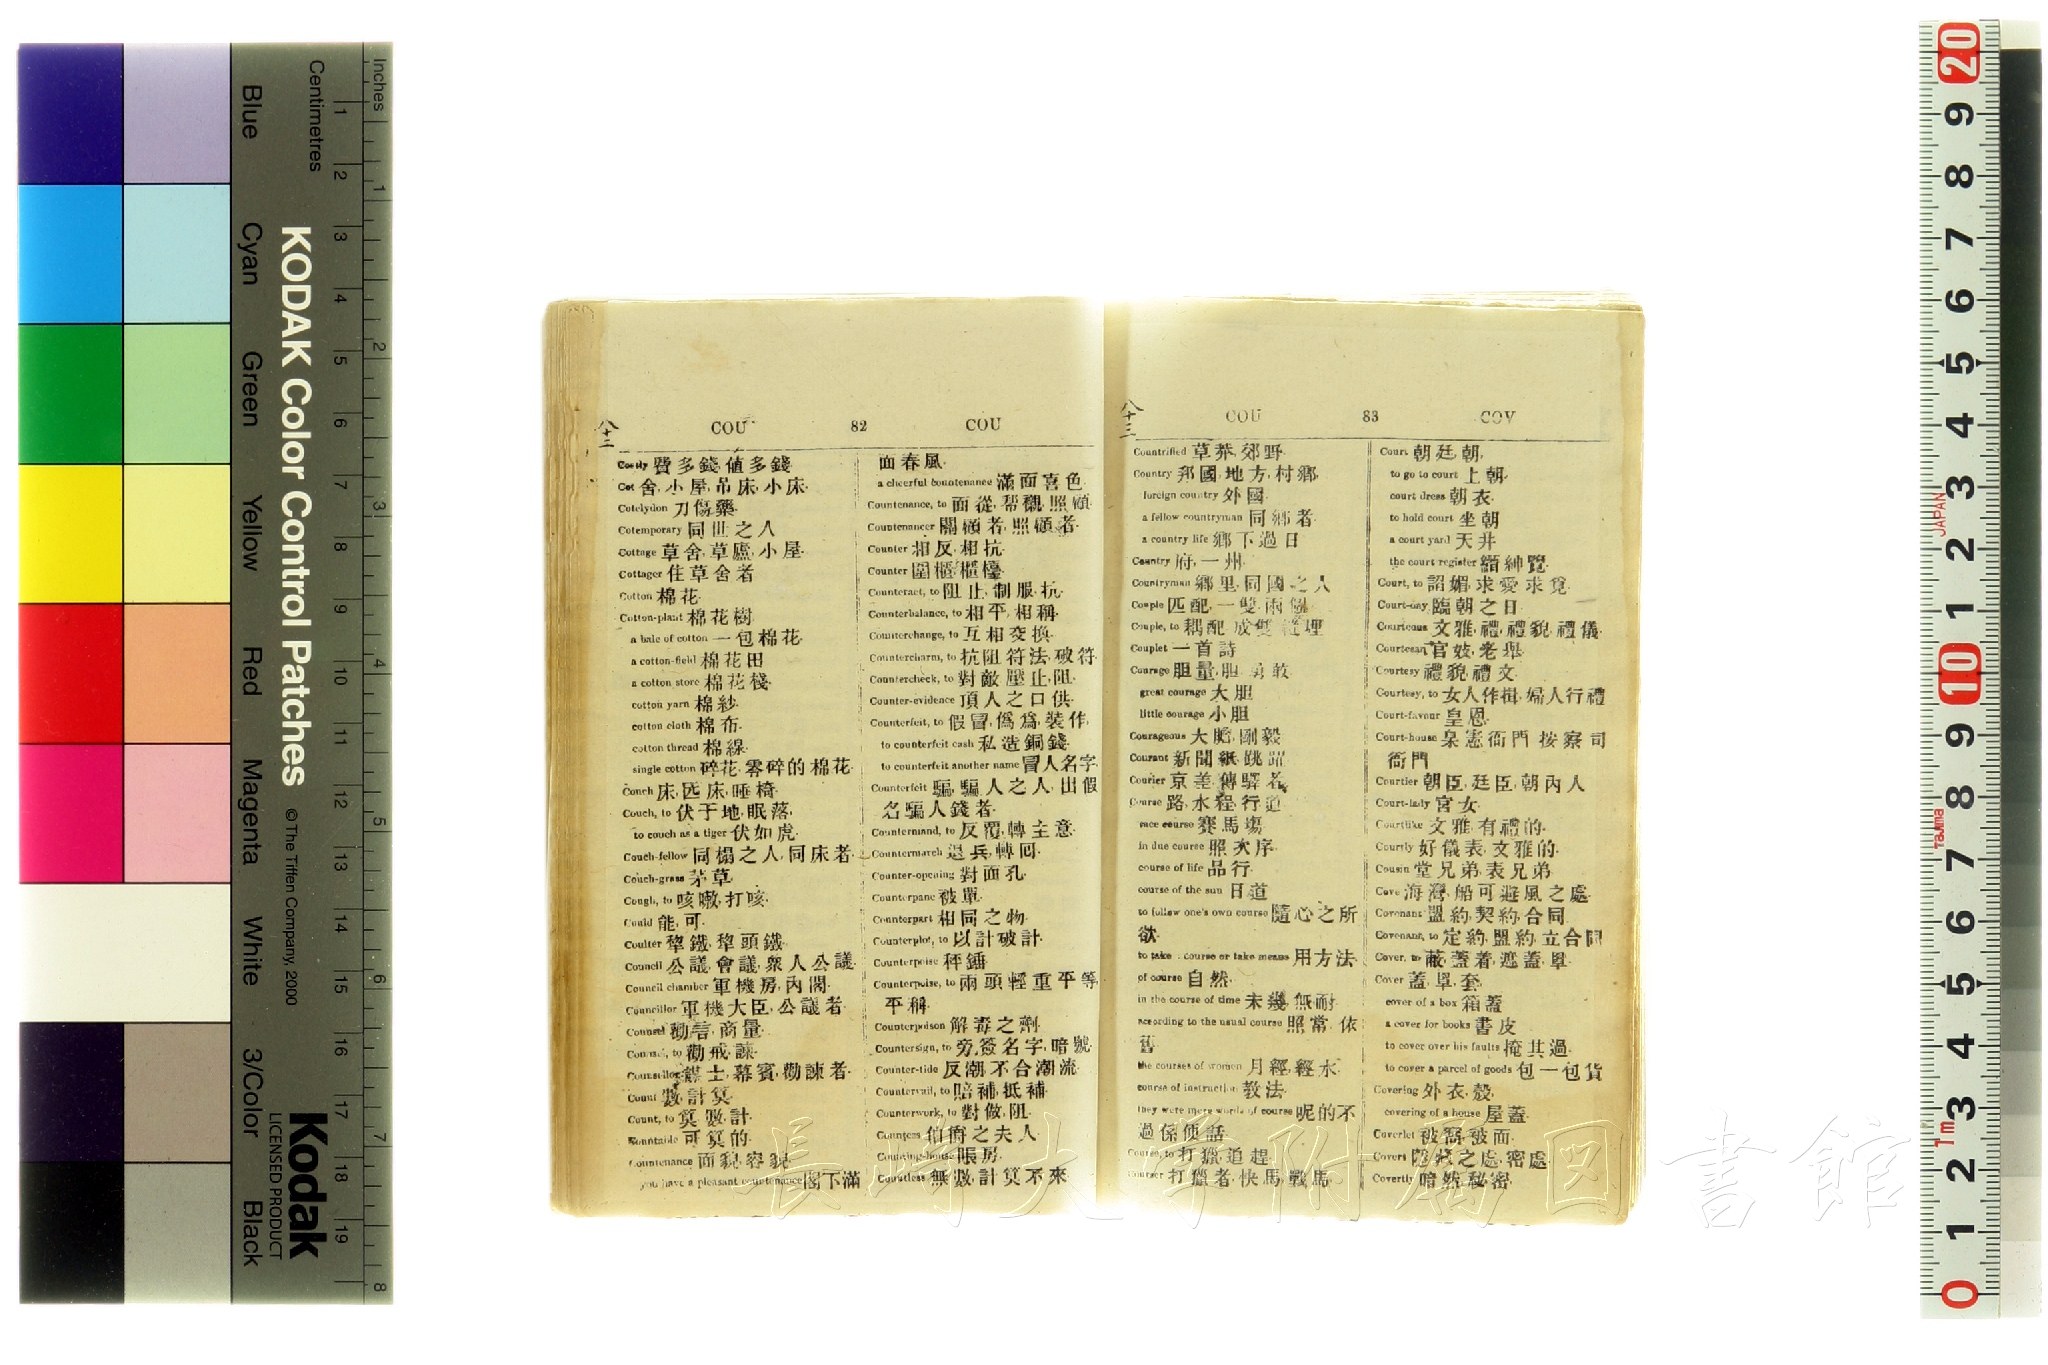 Inches
Centimetres
KODAK Color Control Patches
© The Tiffen Company, 2000
Kodak
LICENSED PRODUCT
Blue Cyan Green Yellow Red Magenta White 3/Color Black
八十二
COU 82 COU
Costly 費多錢, 値多錢
Cot 舍, 小屋, 吊床, 小床
Cotelydon 刀傷藥
Cotemporary 同世之人
Cottage 草舍, 草廬, 小屋
Cottager 住草舍者
Cotton 棉花
Cotton-plant 棉花樹
a bale of cotton 一包棉花
a cotton-field 棉花田
a cotton store 棉花棧
cotton yarn 棉紗
cotton cloth 棉布
cotton thread 棉線
single cotton 碎花, 零碎的棉花
Couch 床, 匟床, 睡椅
Couch, to 伏于地, 眠落
to couch as a tiger 伏如虎
Couch-fellow 同榻之人, 同床者
Couch-grass 茅草
Cough, to 咳嗽, 打咳
Could 能, 可
Coulter 犂鐵, 犂頭鐵
Council 公議, 會議, 衆人公議
Council chamber 軍機房, 內閣
Councillor 軍機大臣, 公議者
Counsel 勸言, 商量
Counsel, to 勸戒, 諫
Counsellor 謀士, 幕賓, 勸諫者
Count 數, 計筭
Count, to 筭, 數, 計
Countable 可筭的
Countenance 面貌, 容貌
you have a pleasant countenance 閣下滿
面春風
a cheerful countenance 滿面喜色
Countenance, to 面從, 幇襯, 照顧
Countenancer 關顧者, 照顧者
Counter 相反, 相抗
Counter 圍櫃, 櫃檯
Counteract, to 阻止, 制服, 抗
Counterbalance, to 相平, 相稱
Counterchange, to 互相交換
Countercharm, to 抗阻符法, 破符
Countercheck, to 對敵, 壓止, 阻
Counter-evidence 頂人之口供
Counterfeit, to 假冒, 僞爲, 裝作
to counterfeit cash 私造銅錢
to counterfeit another name 冒人名字
Counterfeit 騙, 騙人之人, 出假
名騙人錢者
Countermand, to 反覆, 轉主意
Countermarch 退兵, 轉囘
Counter-opening 對面孔
Counterpane 被單
Counterpart 相同之物
Counterplot, to 以計破計
Counterpoise 秤錘
Counterpoise, to 兩頭輕重平等
平稱
Counterpoison 解毒之劑
Countersign, to 旁簽名字, 暗號
Counter-tide 反潮, 不合潮流
Countervail, to 賠補, 抵補
Counterwork, to 對做, 阻
Countess 伯爵之夫人
Counting-house 賬房
Countless 無數, 計筭不來
八十三
COU 83 COV
Countrified 草莽, 郊野
Country 邦國, 地方, 村鄉
foreign country 外國
a fellow countryman 同鄉者
a country life 鄉下過日
Country 府, 一州
Countryman 鄉里, 同國之人
Couple 匹配, 一雙, 兩個
Couple, to 耦配, 成雙
Couplet 一首詩
Courage 胆量, 胆, 勇敢
great courage 大胆
little courage 小胆
Courageous 大膽, 剛毅
Courant 新聞紙, 跳躍
Courier 京差, 傳驛者
Course 路, 水程, 行道
race course 賽馬塲
in due course 照次序
course of life 品行
course of the sun 日道
to follow one's own course 隨心之所
欲
to take course or take means 用方法
of course 自然
in the course of time 未幾, 無耐
according to the usual course 照常, 依
舊
the courses of women 月經, 經水
course of instruction 敎法
they were mere words of course 呢的不
過係便話
Course, to 打獵, 追趕
Courser 打獵者, 快馬, 戰馬
Court 朝廷, 朝
to go to court 上朝
court dress 朝衣
to hold court 坐朝
a court yard 天井
the court register 縉紳覽
Court, to 謟媚, 求愛, 求覓
Court-day 臨朝之日
Courteous 文雅, 禮, 禮貌, 禮儀
Courtesan 官妓, 老舉
Courtesy 禮貌, 禮文
Courtesy, to 女人作揖, 婦人行禮
Court-favour 皇恩
Court-house 臬憲衙門, 按察司
衙門
Courtier 朝臣, 廷臣, 朝內人
Court-lady 宮女
Courtlike 文雅, 有禮的
Courtly 好儀表, 文雅的
Cousin 堂兄弟, 表兄弟
Cove 海灣, 船可避風之處
Covenant 盟約, 契約, 合同
Covenant, to 定約, 盟約, 立合同
Cover, to 蔽, 蓋着, 遮蓋, 罩
Cover 蓋, 罩, 套
cover of a box 箱蓋
a cover for books 書皮
to cover over his faults 掩其過
to cover a parcel of goods 包一包貨
Covering 外衣, 殼
covering of a house 屋蓋
Coverlet 被窩, 被面
Covert 隱藏之處, 密處
Covertly 暗然, 秘密
長崎大学附属図書館
JAPAN
Tajima
1m